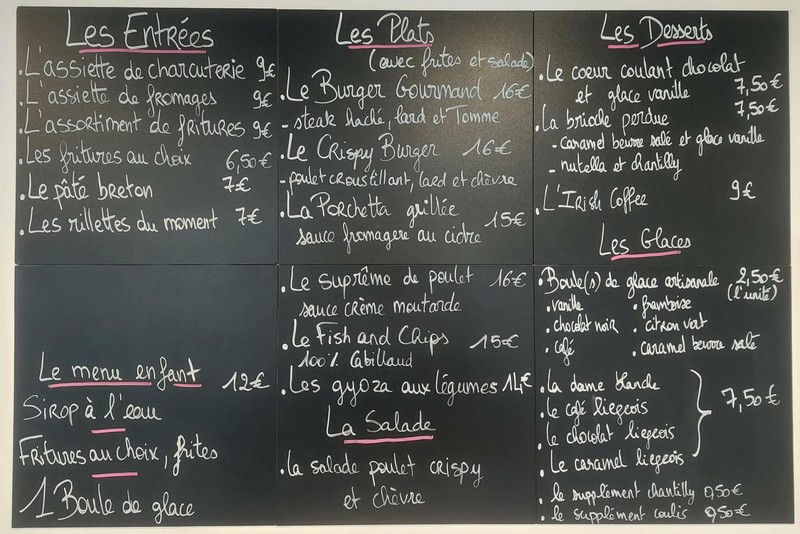 Les Entrées
.L'assiette de charcuterie 9€
.L'assiette de fromages 9€
.L'assortiment de fritures 9€
.Les fritures au choix 6,50€
.Le pâté breton 7€
.Les rillettes du moment 7€
Le menu enfant 12€
Sirop à l'eau
Fritures au choix, frites
1 Boule de glace
Les Plats
(avec frites et salade)
.Le Burger Gourmand 16€
- steak haché, lard et Tomme
.Le Crispy Burger 16€
- poulet croustillant, lard et chèvre
.La Porchetta grillée 15€
sauce fromagere au cidre
.Le suprême de poulet 16€
sauce crème moutarde
.Le Fish and Chips 15€
100% Cabillaud
.Les gyoza aux légumes 14€
La Salade
.la salade poulet crispy
et chèvre
Les Desserts
.Le coeur coulant chocolat
et glace vanille 7,50€
.La brioche perdue 7,50€
- caramel beurre salé et glace vanille
- nutella et chantilly
.L'Irish Coffee 9€
Les Glaces
.Boule(s) de glace artisanale 2,50€
(l'unité)
.vanille .framboise
.chocolat noir .citron vert
.café .caramel beurre salé
.La dame blanche
.Le café liegeois 7,50€
.Le chocolat liegeois
.Le caramel liegeois
.le supplément chantilly 0,50€
.le supplément coulis 0,50€